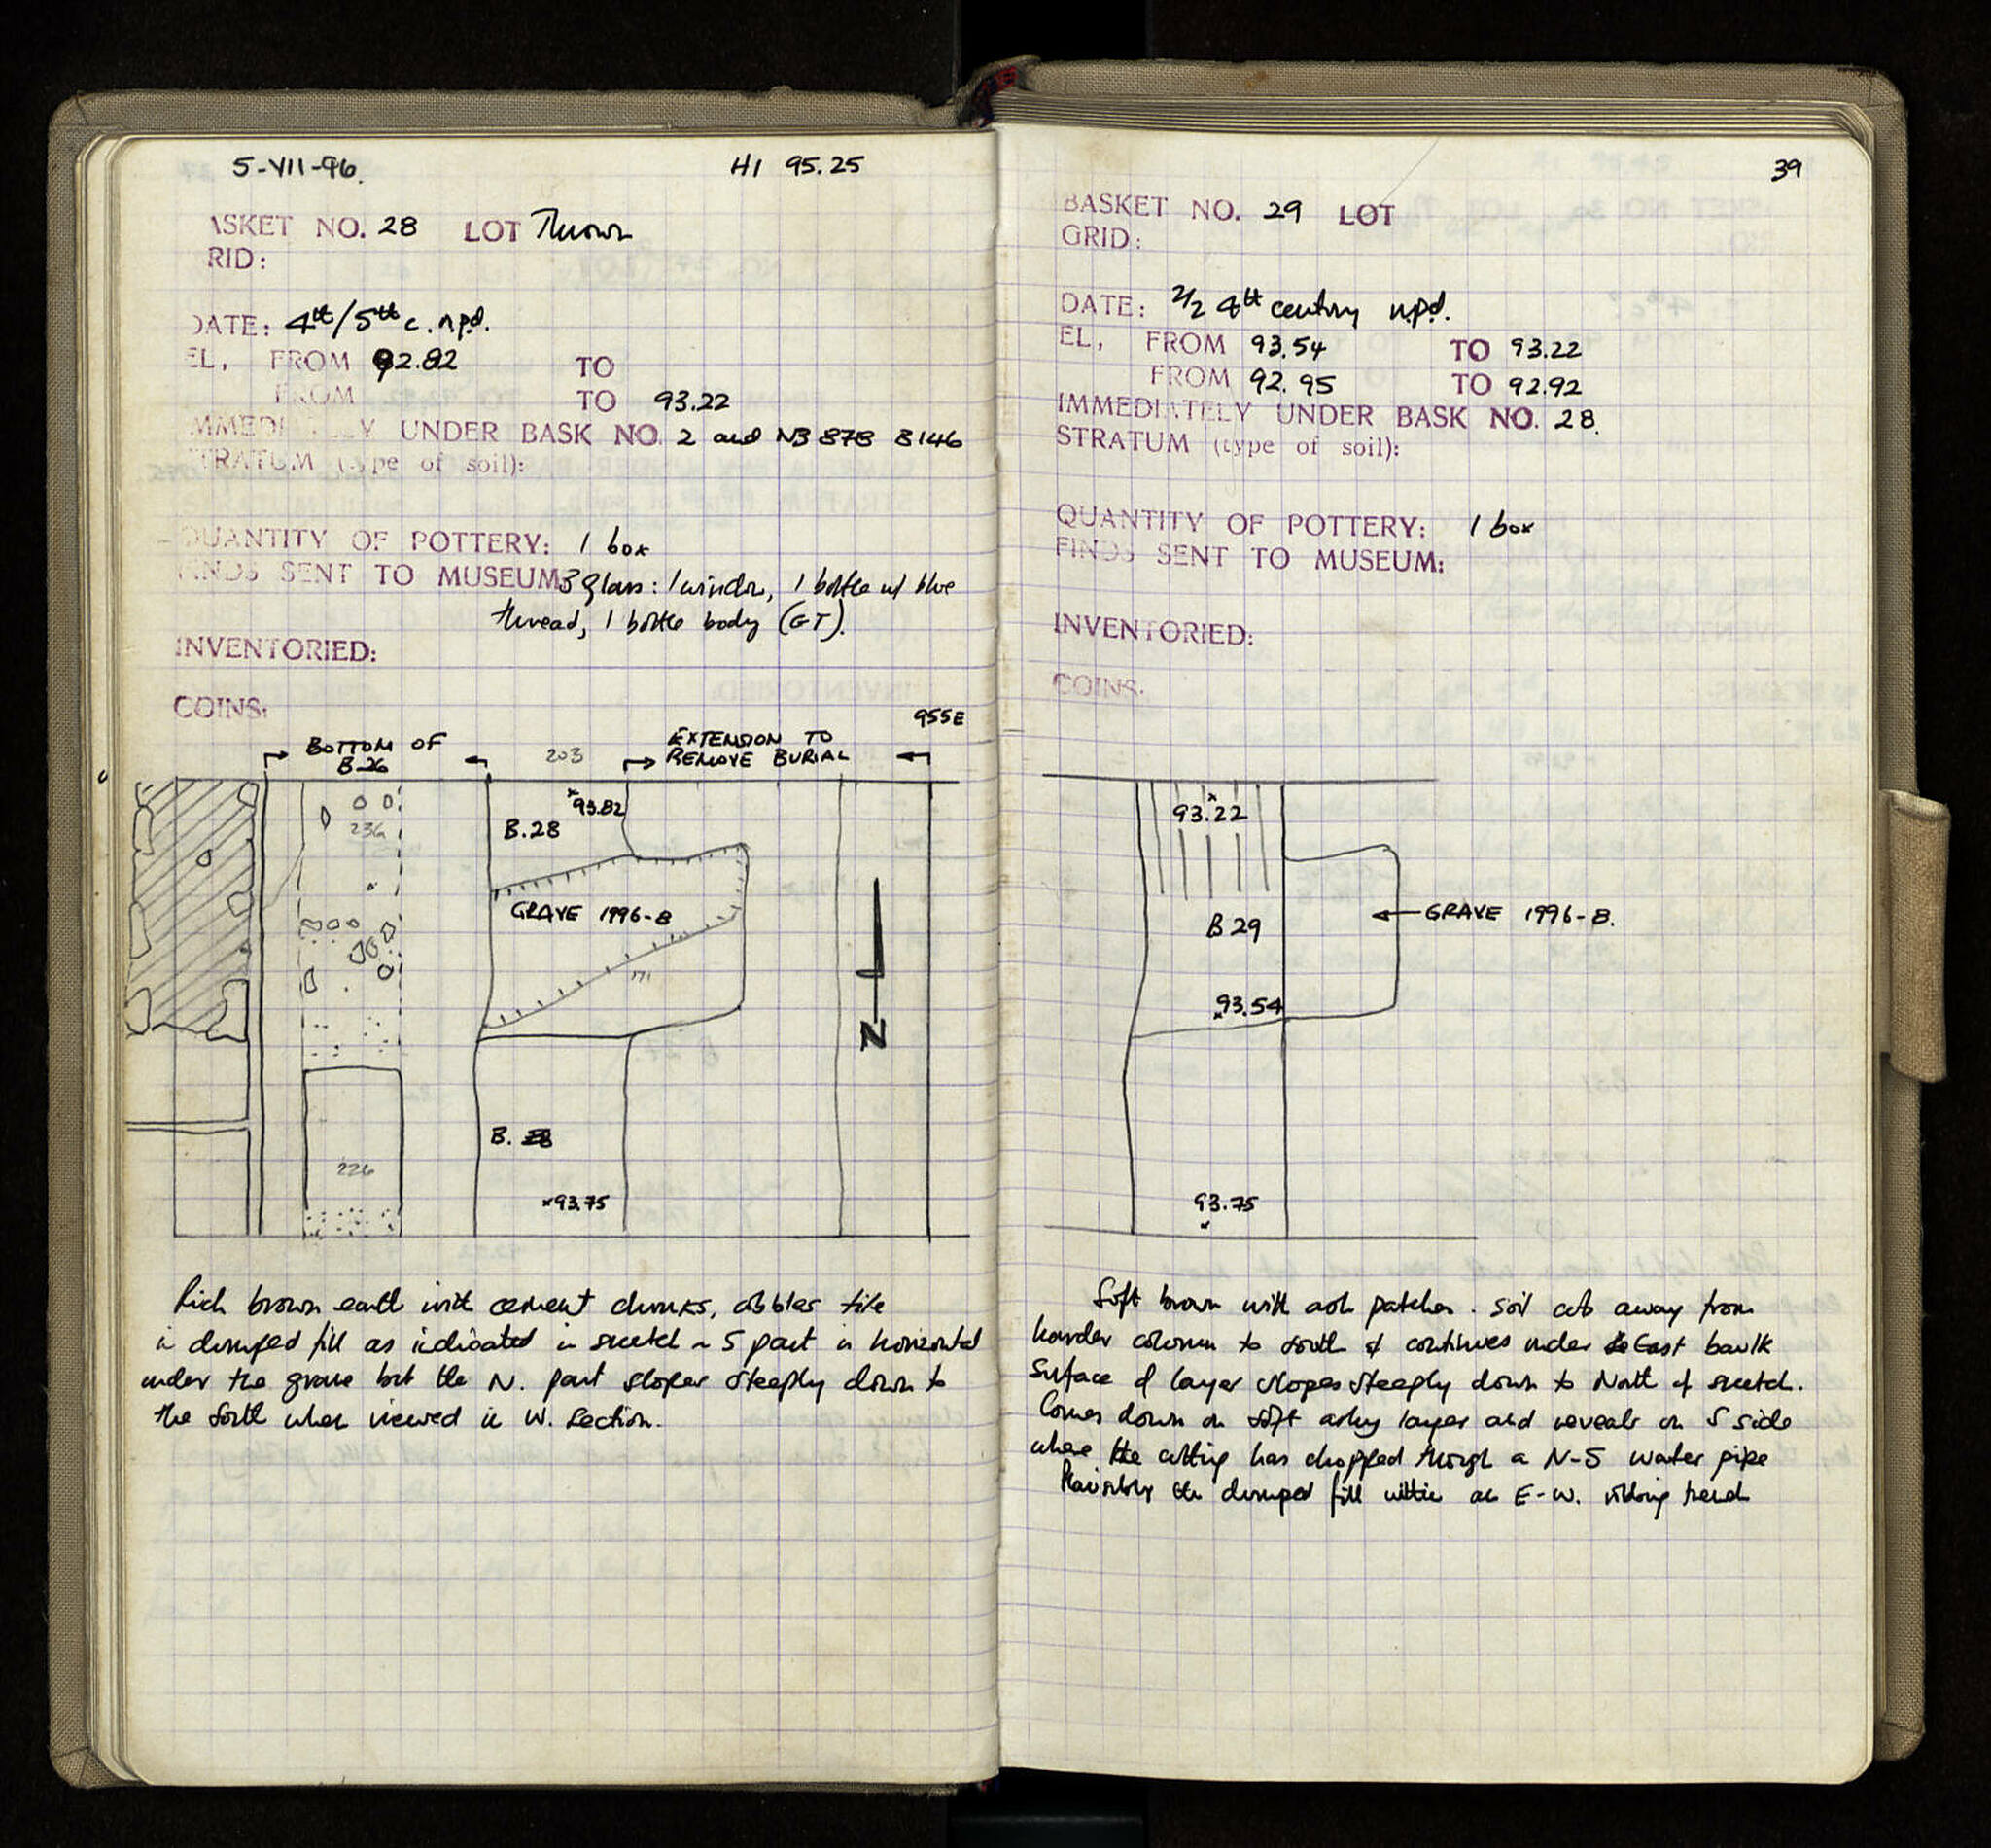 5-VII-96.
HI 95.25
ASKET NO. 28 LOT Thrown
RID:
DATE: 4th/5th c. n.p.d.
EL, FROM 92.82 TO
FROM TO 93.22
IMMEDI LY UNDER BASK NO. 2 and NB 878 B146
STRATUM (type of soil):
QUANTITY OF POTTERY: 1 box
FINDS SENT TO MUSEUM: 3 glass: 1 window, 1 bottle w/ blue
thread, 1 bottle body (GT).
INVENTORIED:
COINS:
955E
BOTTOM OF
B-26
203
EXTENSION TO
REMOVE BURIAL
93.82
B.28
236
GRAVE 1996-B
171
N
B. 28
226
93.75
Rich brown earth with cement chunks, cobbles tile
in dumped fill as indicated in sketch ~ S part is horizontal
under the grave but the N. part slopes steeply down to
the South when viewed in W. Section.
39
BASKET NO. 29 LOT
GRID:
DATE: 2/2 4th century n.p.d.
EL, FROM 93.54 TO 93.22
FROM 92.95 TO 92.92
IMMEDIATELY UNDER BASK NO. 28.
STRATUM (type of soil):
QUANTITY OF POTTERY: 1 box
FINDS SENT TO MUSEUM:
INVENTORIED:
COINS.
93.22
B 29
GRAVE 1996-B.
93.54
93.75
Soft brown with ash patches. Soil cuts away from
harder column to South & continues under East baulk
Surface of layer slopes steeply down to North of sketch.
Comes down on soft ashy layer and reveals on S side
where the cutting has chopped through a N-S water pipe
the dumped fill within an E-W. robbing trench